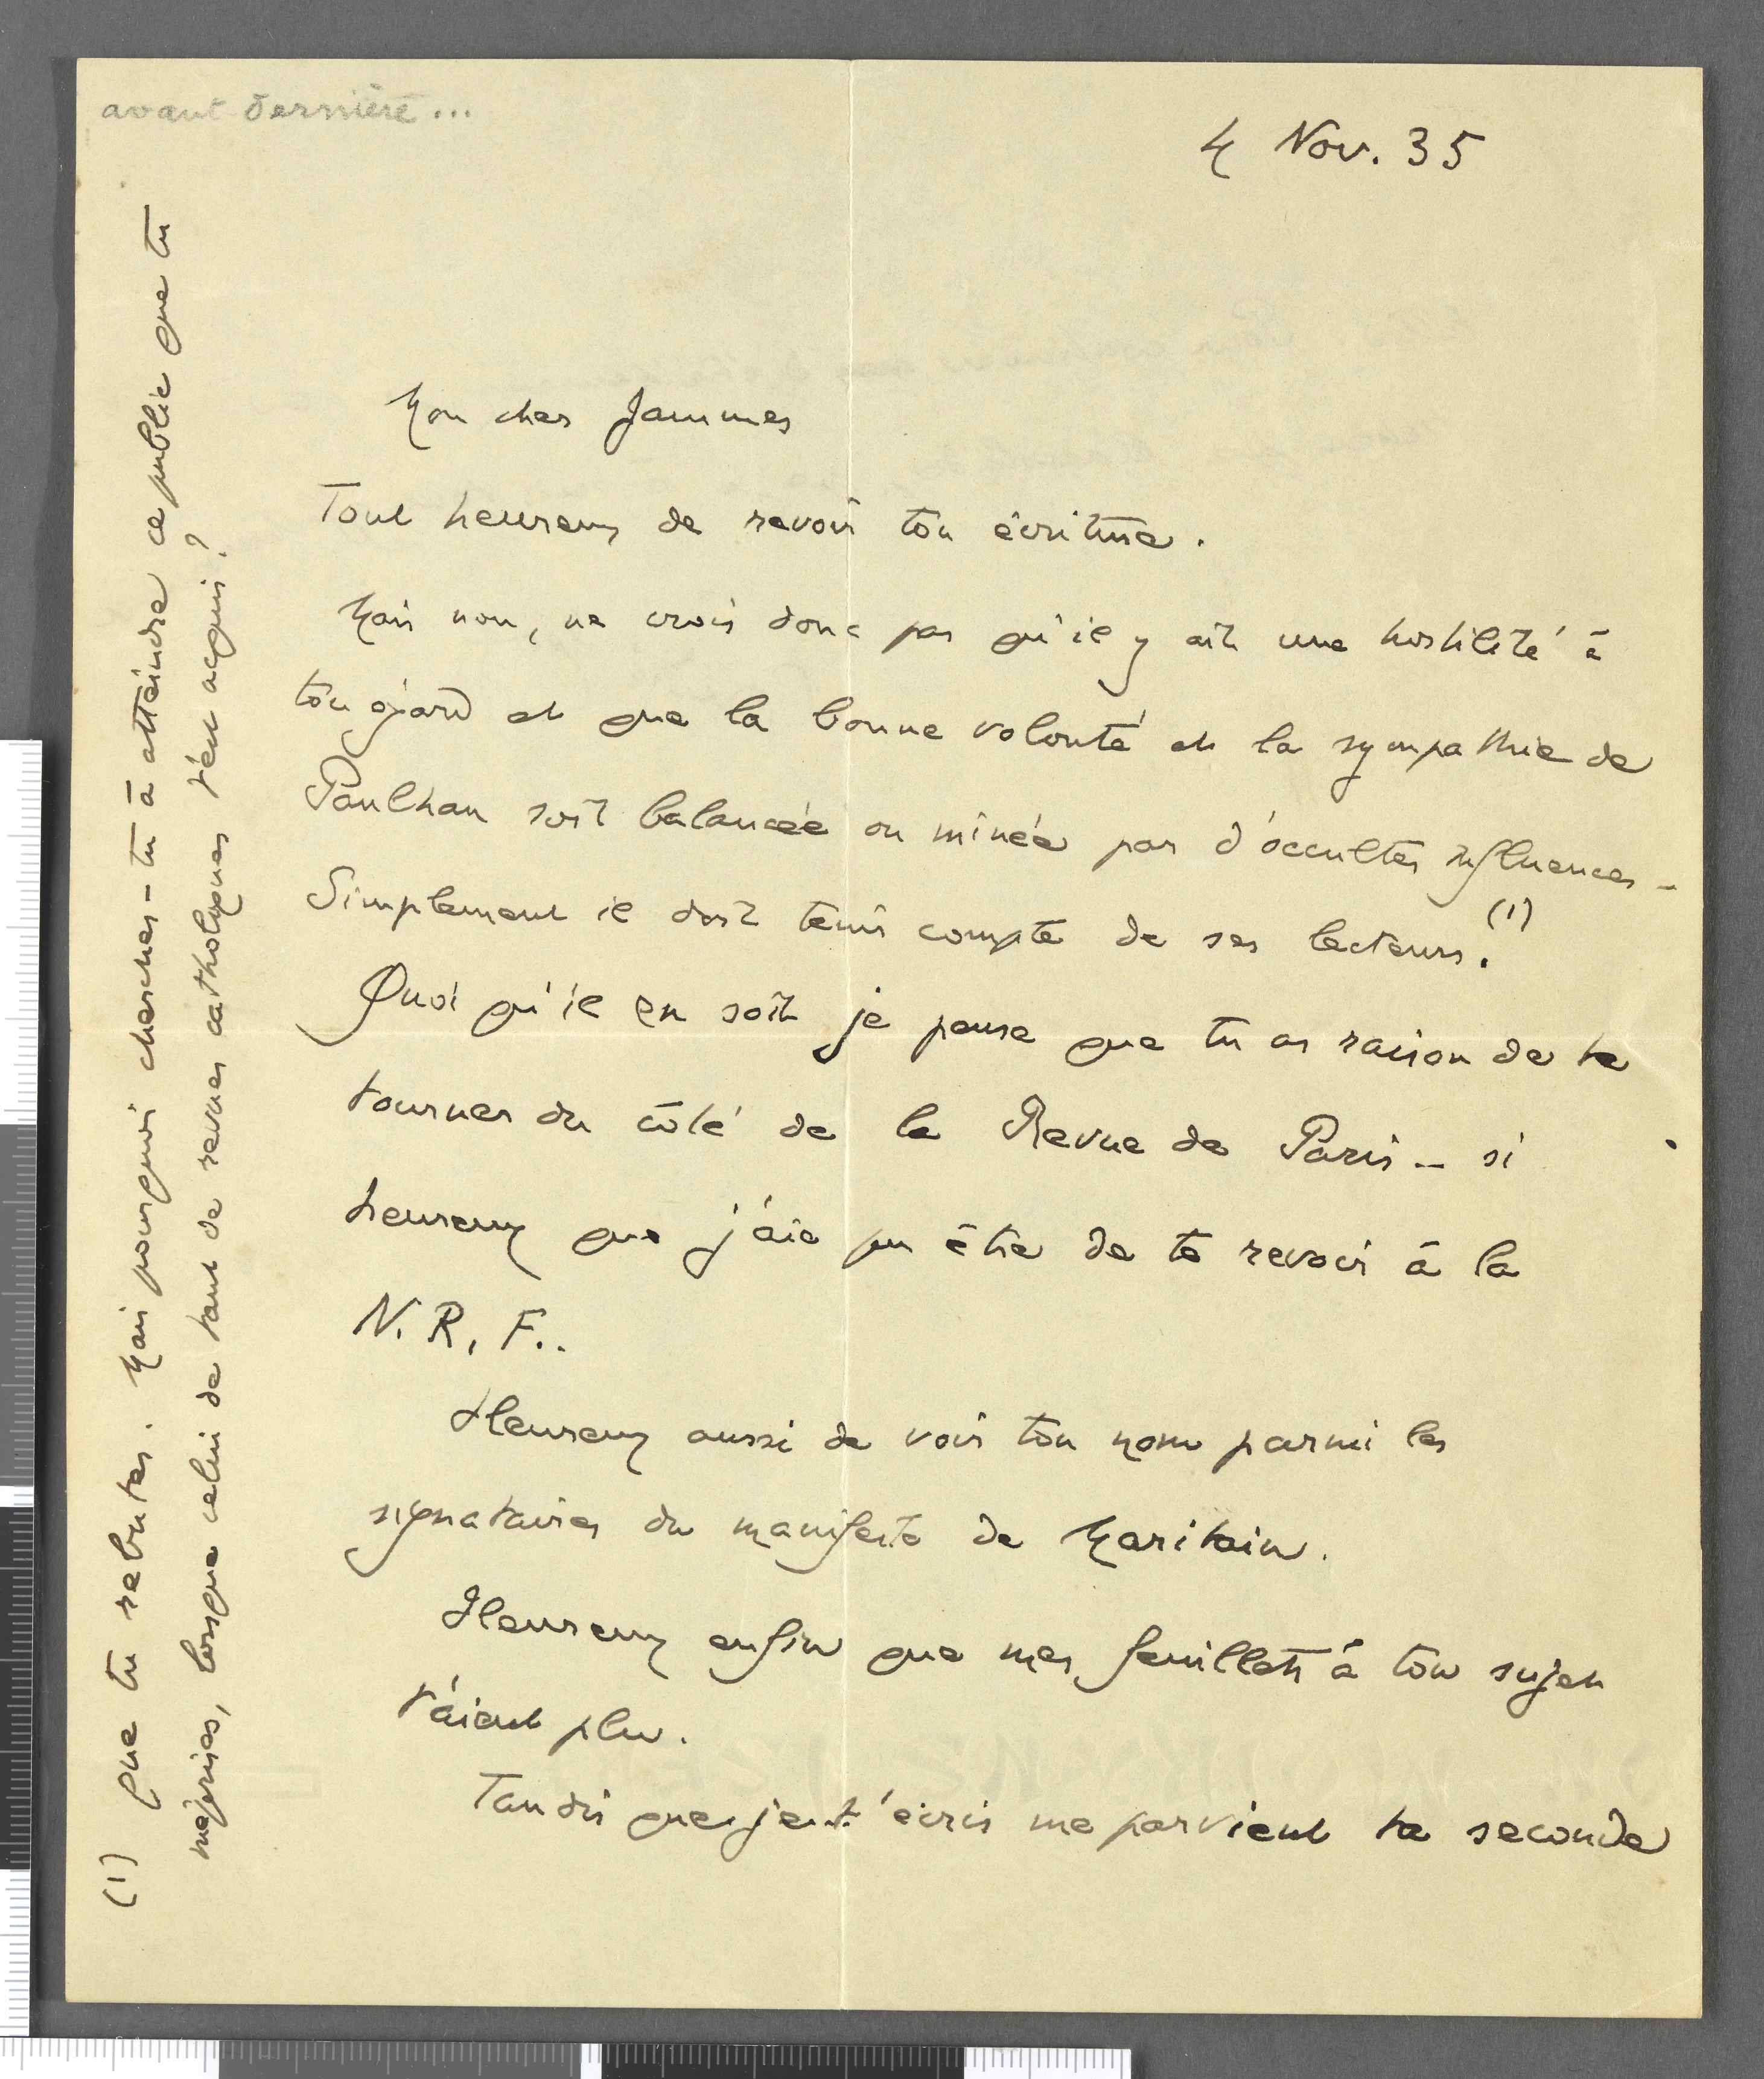 avant dernière...
4 Nov. 35
Mon cher Jammes
Tout heureux de revoir ton écriture.
Mais non, ne crois donc pas qu'il y ait une hostilité à
ton égard et que la bonne volonté et la sympathie de
Paulhan soit balancée ou minée par d'occultes influences -
Simplement il doit tenir compte de ses lecteurs. (1)
Quoi qu'il en soit je pense que tu as raison de te
tourner du côté de la Revue de Paris - si
heureux que j'aie pu être de te revoir à la
N. R. F..
Heureux aussi de voir ton nom parmi les
signataires du manifeste de Maritain.
Heureux enfin que mes feuillets à ton sujet
t'aient plu.
Tandis que je t'écris me parvient ta seconde
(1) que tu rebutes. Mais pourquoi cherches-tu à atteindre ce public que tu
méprises, lorsque celui de tant de revues catholiques t'est acquis?